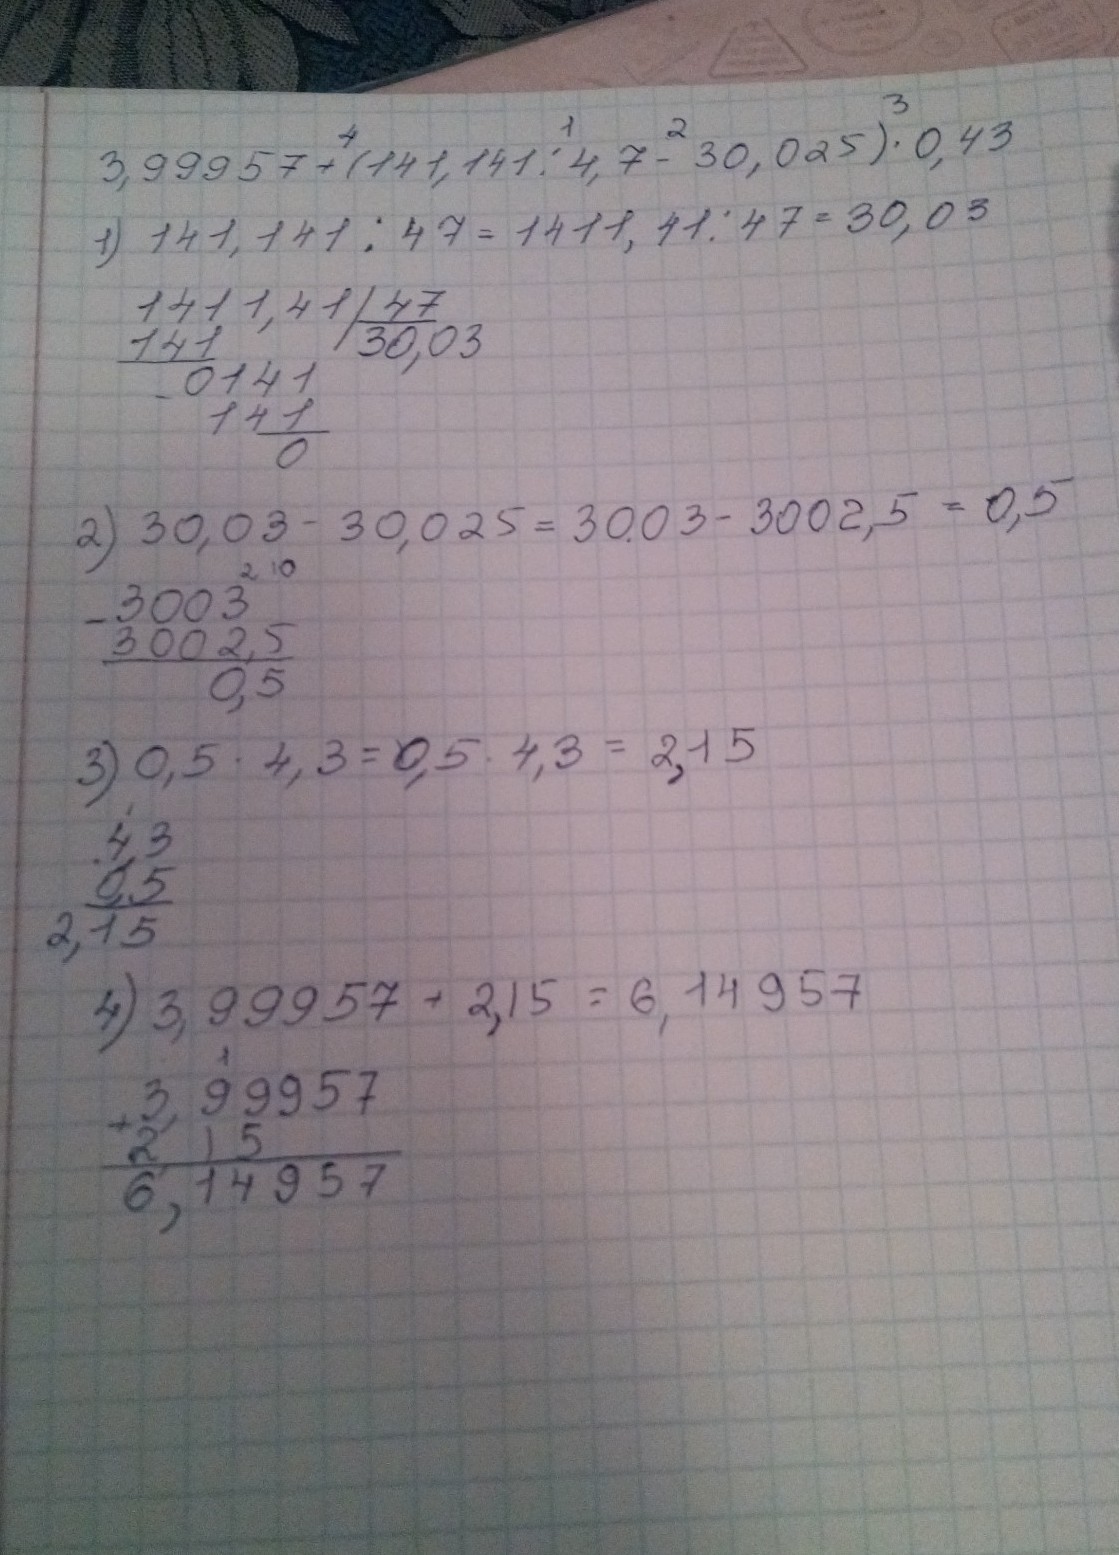 4 1 2 3
3,99957+(141,141:4,7-30,025)·0,43
1) 141,141 : 47 = 1411,41 : 47 = 30,03
1411,41 | 47
141 30,03
- 0141
141
0
2) 30,03 - 30,025 = 3003 - 3002,5 = 0,5
2 10
- 3003
3002,5
0,5
3) 0,5 · 4,3 = 0,5 · 4,3 = 2,15
1
4 3
0,5
2,15
4) 3,99957 + 2,15 = 6,14957
1
+ 3,99957
2 15
6,14957